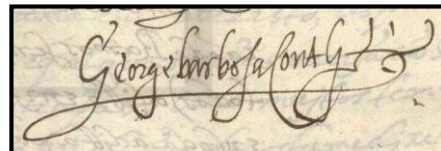 George barbosa Cout